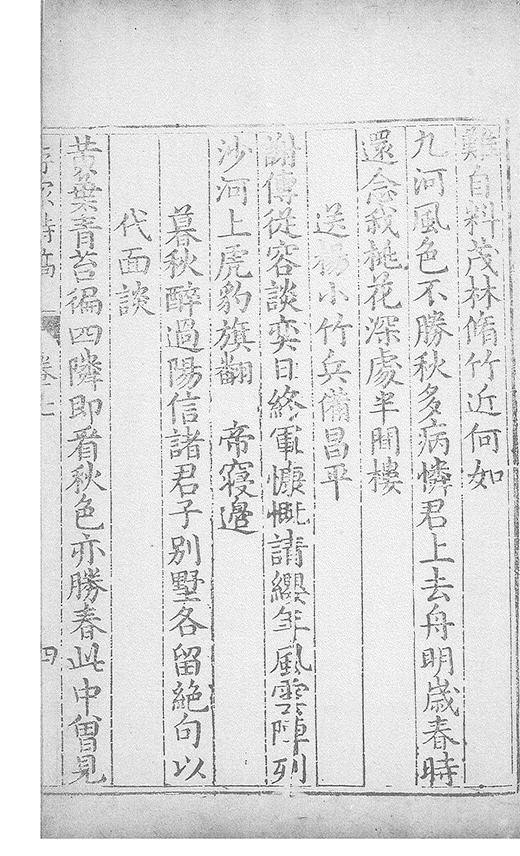 難自料茂林脩竹近何如
九河風色不勝秋多病憐君上去舟明歲春時
還念我桃花深處半間樓
送楊小竹兵備昌平
謝傅從容談奕日終軍慷慨請纓年風雲陣列
沙河上虎豹旗翻 帝寢邊
暮秋醉過陽信諸君子別墅各留絕句以
代面談
黃葉青苔徧四隣即看秋色亦勝春此中曾見
詩稿 卷七 四